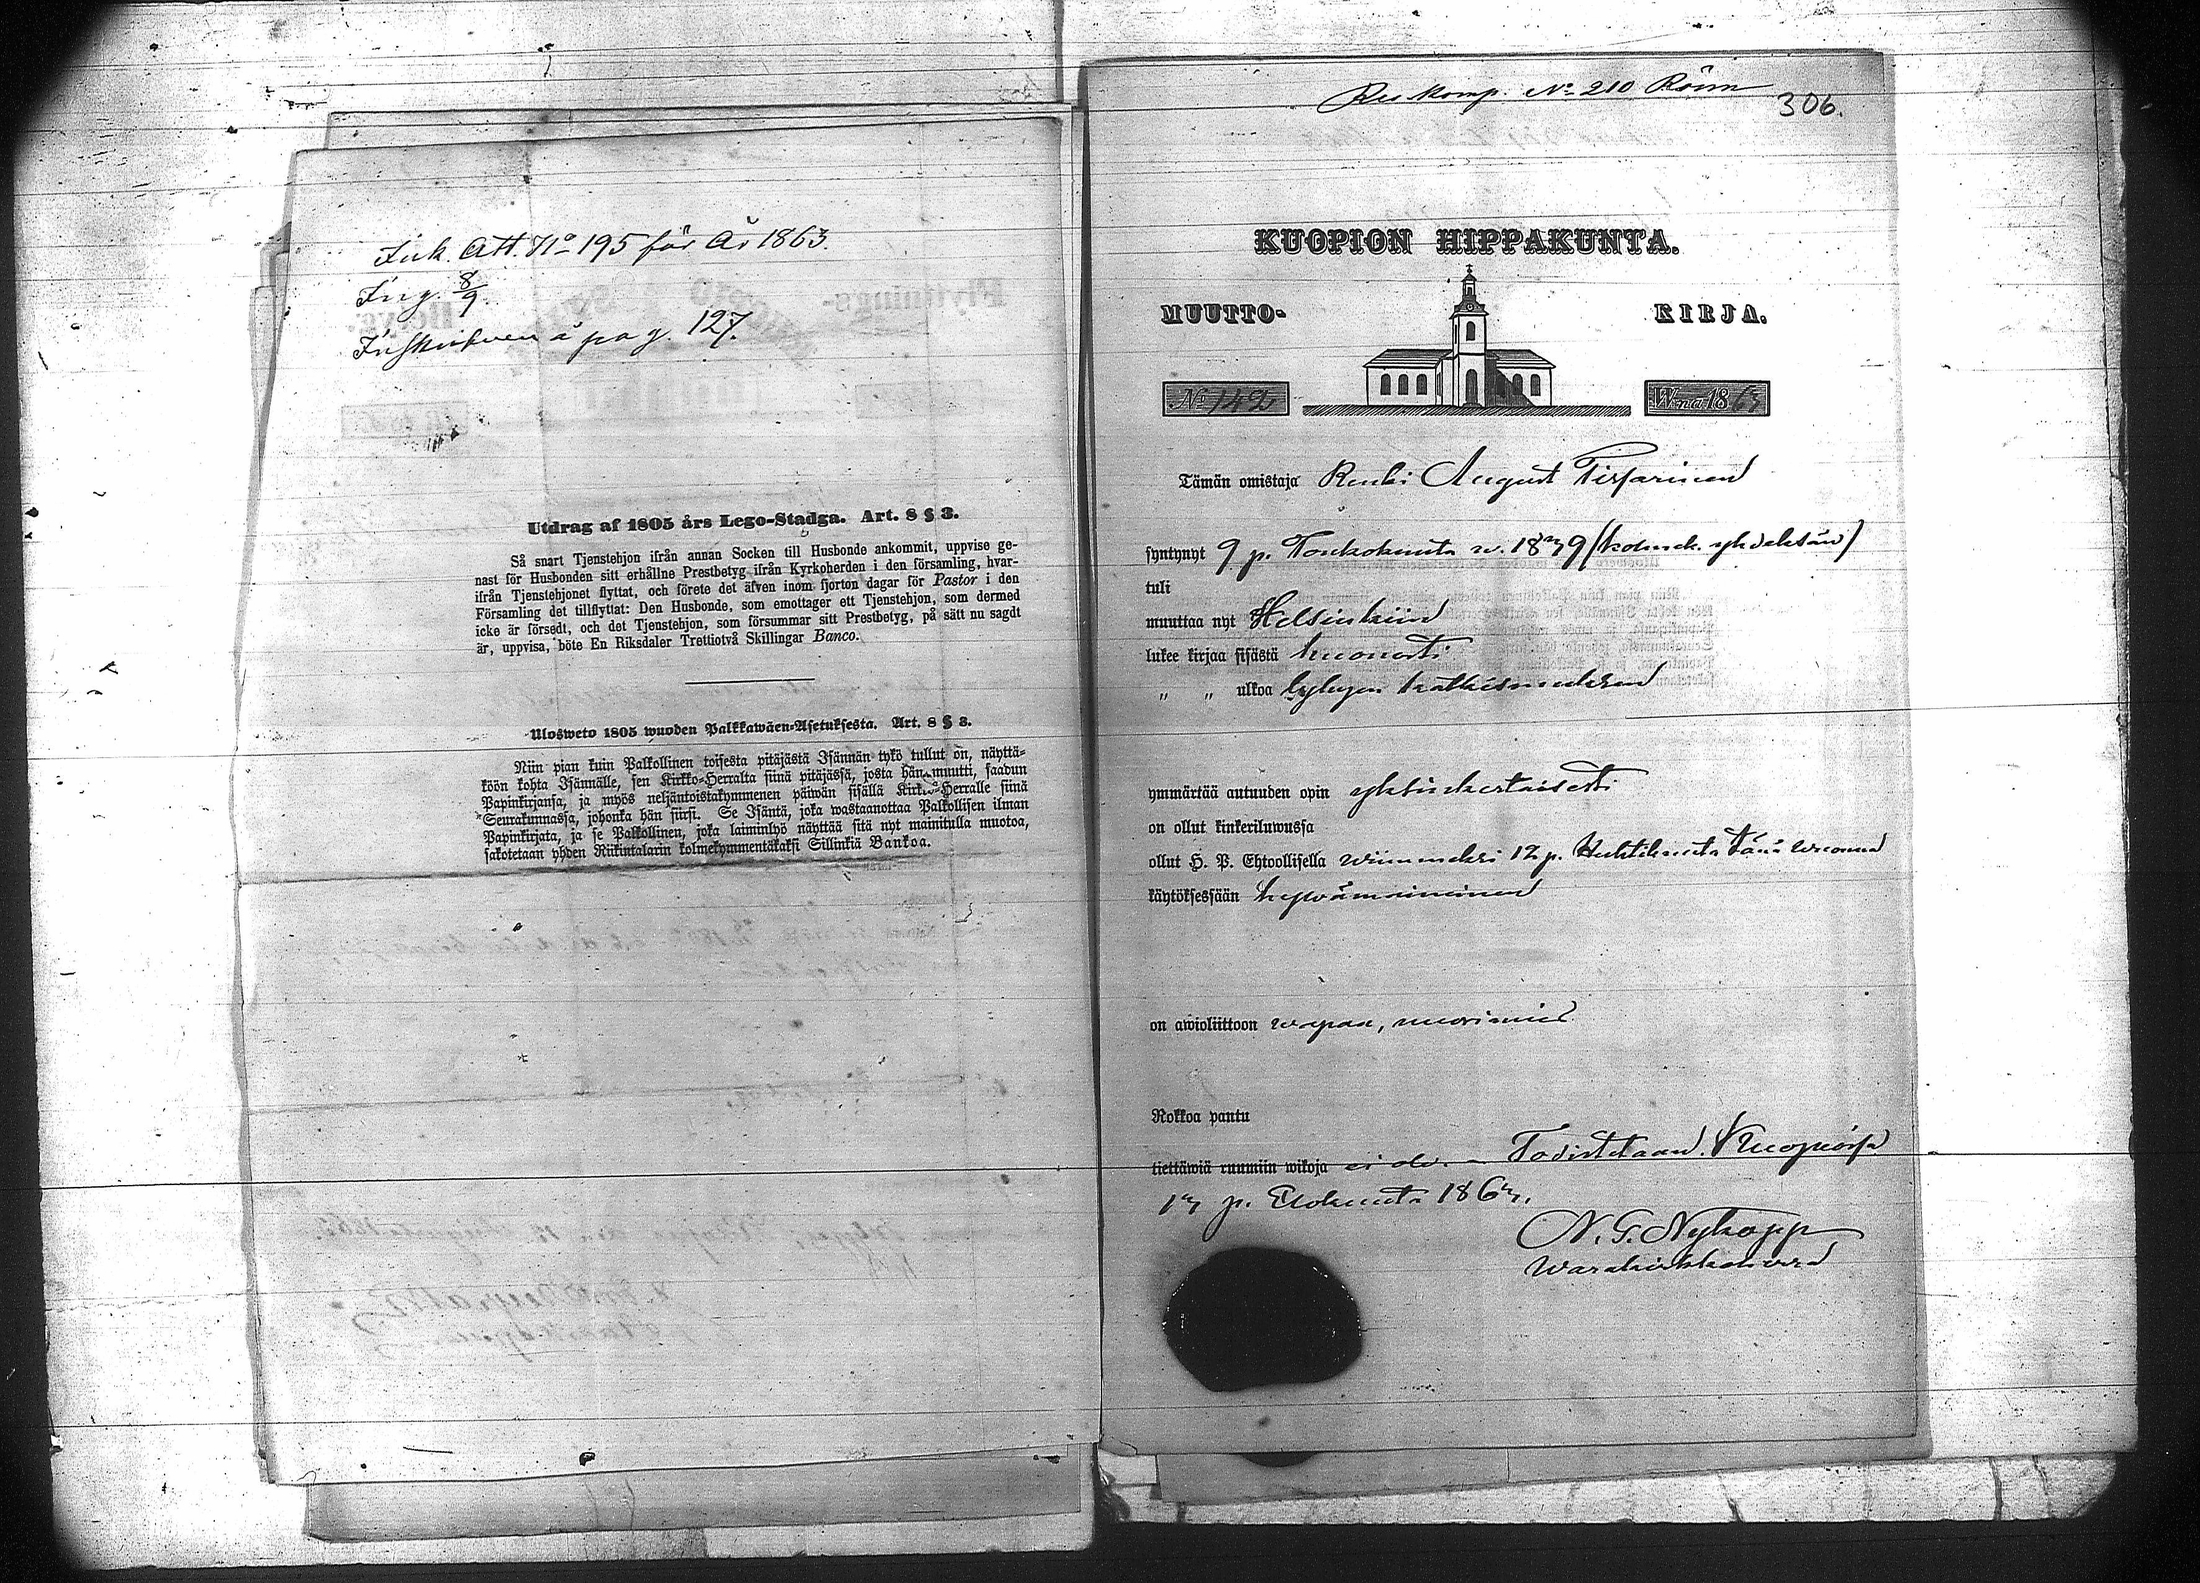 Ink. Att. No 195 för År 1863.
Ing. 8/9
Inskrifven å pag. 127.
Utdrag af 1805 års Lego-Stadga. Art. 8 § 3.
Så snart Tjenstehjon ifrån annan Socken till Husbonde ankommit, uppvise ge-
nast för Husbonden sitt erhållne Prestbetyg ifrån Kyrkoherden i den församling, hvar-
ifrån Tjenstehjonet flyttat, och förete det äfven inom fjorton dagar för Pastor i den
Församling det tillflyttat: Den Husbonde, som emottager ett Tjenstehjon, som dermed
icke är försedt, och det Tjenstehjon, som försummar sitt Prestbetyg, på sätt nu sagdt
är, uppvisa, böte En Riksdaler Trettiotvå Skillingar Banco.
Ulosweto 1805 wuoden Palkkawäen-Asetuksesta. Art. 8 § 3.
Niin pian kuin Palkollinen toisesta pitäjästä Isännän tykö tullut on, näyttä-
köön kohta Isännälle, sen Kirkko-Herralta siinä pitäjässä, josta hän muutti, saadun
Papinkirjansa, ja myös neljäntoistakymmenen päiwän sisällä Kirkko-Herralle siinä
Seurakunnassa, johonka hän siirsi. Se Isäntä, joka wastaanottaa Palkollisen ilman
Papinkirjata, ja se Palkollinen, joka laiminlyö näyttää sitä nyt mainitulla muotoa,
sakotetaan yhden Riikintalarin kolmekymmentäkaksi Sillinkiä Bankoa.
Res komp. No 210 Rönn
306.
KUOPION HIPPAKUNTA.
MUUTTO- KIRJA.
No 142 Wna 1863
Tämän omistaja Renki August Tissarinen
syntynyt 9 p. Toukokuuta w. 1839 (kolmek. yhdeksän)
tuli
muuttaa nyt Helsinkiin
lukee kirjaa sisästä huonosti
" " ulkoa Lyhyen katkismuksen
ymmärtää autuuden opin yksinkertaisesti
on ollut kinkeriluwussa
ollut H. P. Ehtoollisella wiimmeksi 12 p. Huhtikuuta tänä wuonna
käytöksessään hywämaineinen
on awioliittoon wapaa, nuorimies.
Rokkoa pantu
tiettäwiä ruumiin wikoja ei ole. Todistetaan. Kuopiossa
13 p. Elokuuta 1863.
N. G. Nykopp
Warakirkkoherra